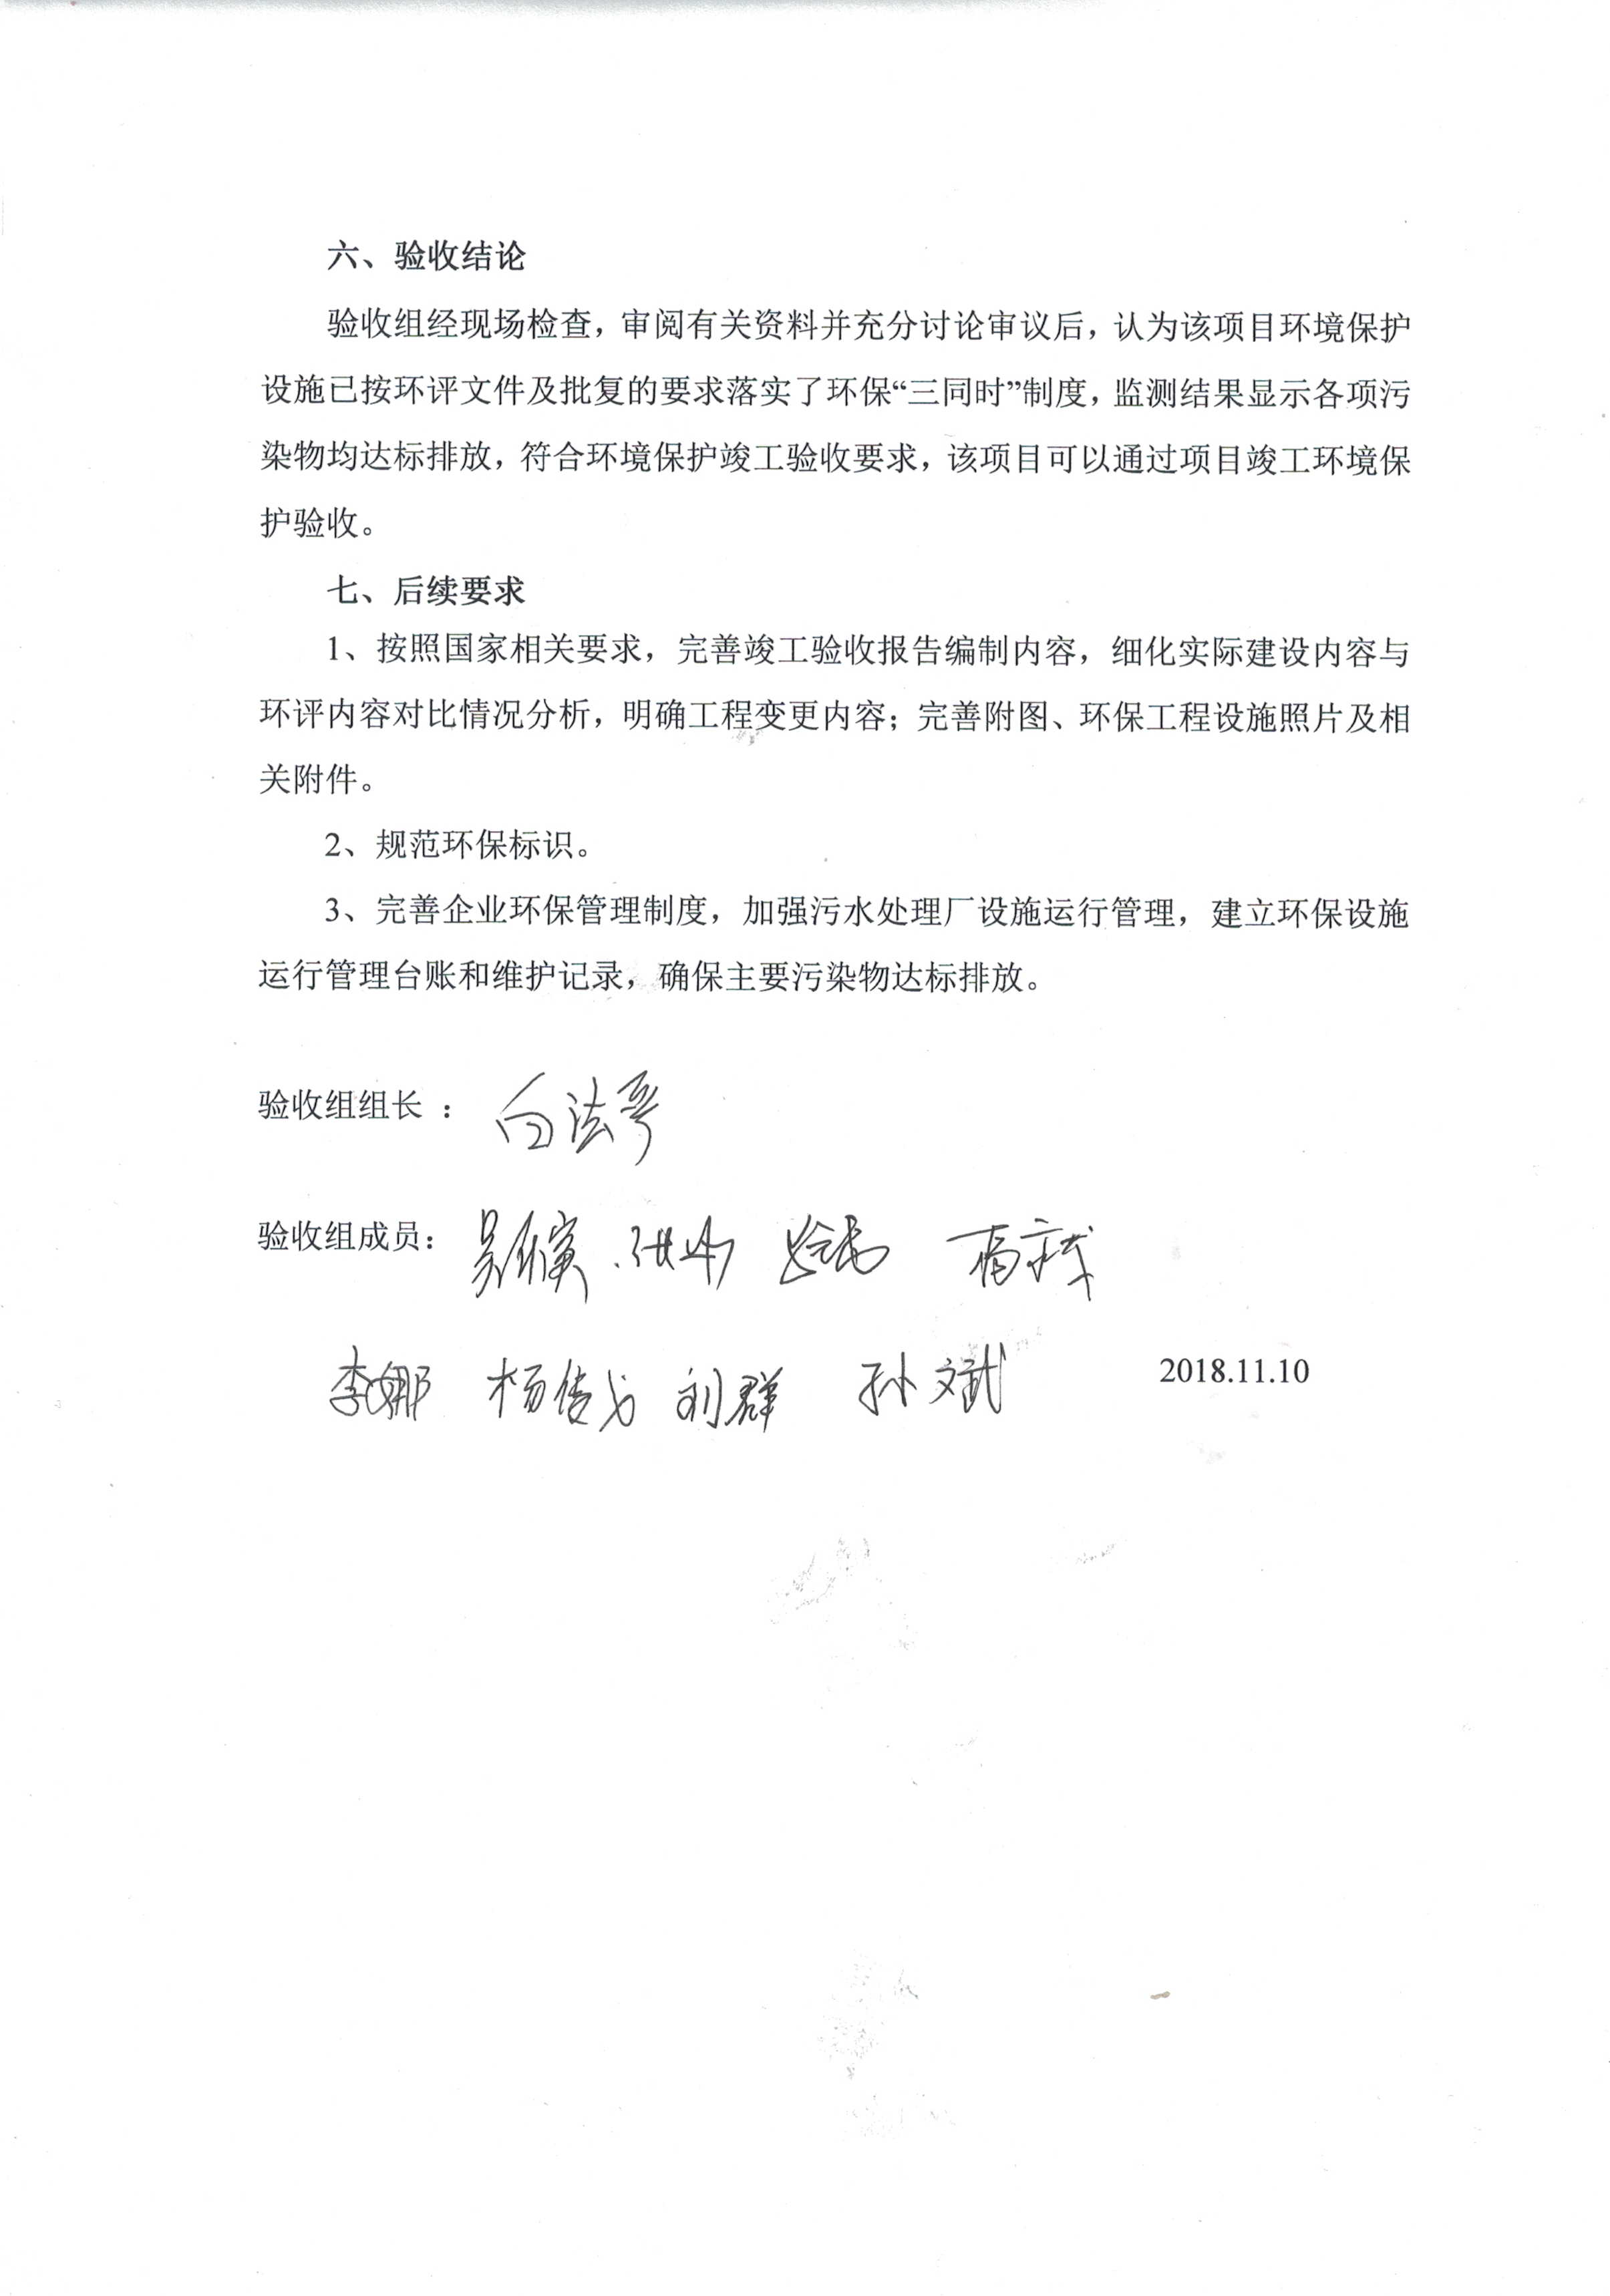 六、验收结论
验收组经现场检查，审阅有关资料并充分讨论审议后，认为该项目环境保护
设施已按环评文件及批复的要求落实了环保“三同时”制度，监测结果显示各项污
染物均达标排放，符合环境保护竣工验收要求，该项目可以通过项目竣工环境保
护验收。
七、后续要求
1、按照国家相关要求，完善竣工验收报告编制内容，细化实际建设内容与
环评内容对比情况分析，明确工程变更内容；完善附图、环保工程设施照片及相
关附件。
2、规范环保标识。
3、完善企业环保管理制度，加强污水处理厂设施运行管理，建立环保设施
运行管理台账和维护记录，确保主要污染物达标排放。
验收组组长 ：
验收组成员：
李娜 刘群 孙文斌 2018.11.10